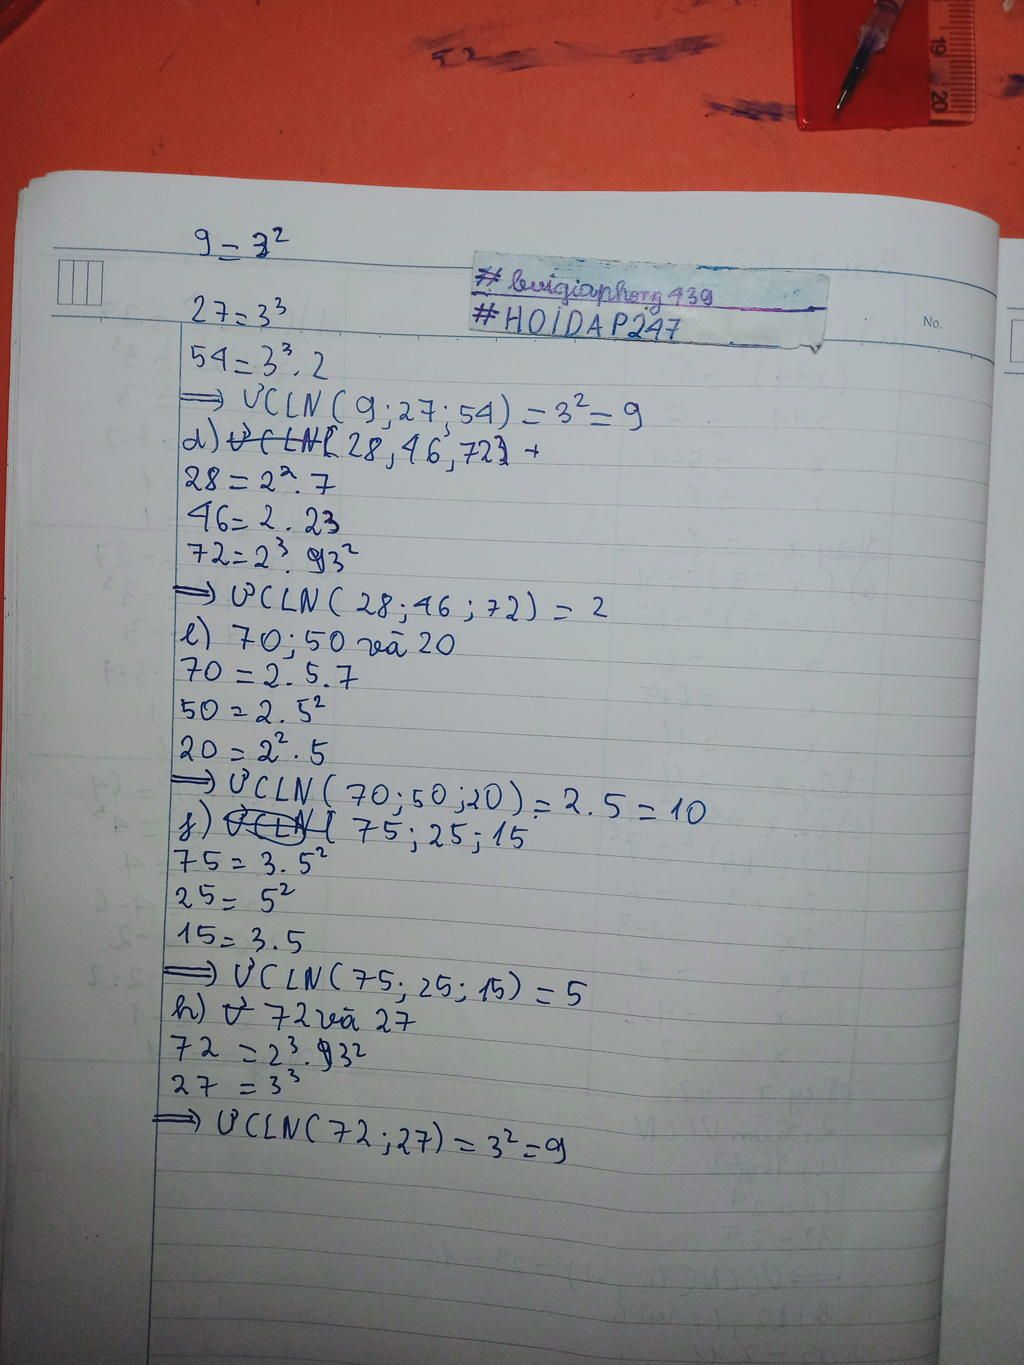 9 = 3²
#buigiaphong439
27 = 3³
#HOIDAP247
No.
54 = 3³ . 2
=> ƯCLN( 9 ; 27 ; 54 ) = 3² = 9
d) ƯCLN( 28 , 46 , 72 )
28 = 2² . 7
46 = 2 . 23
72 = 2³ . 3²
=> ƯCLN( 28 ; 46 ; 72 ) = 2
e) 70 ; 50 và 20
70 = 2 . 5 . 7
50 = 2 . 5²
20 = 2² . 5
=> ƯCLN( 70 ; 50 ; 20 ) = 2 . 5 = 10
f) ƯCLN( 75 ; 25 ; 15
75 = 3 . 5²
25 = 5²
15 = 3 . 5
=> ƯCLN( 75 ; 25 ; 15 ) = 5
h) Ư 72 và 27
72 = 2³ . 3²
27 = 3³
=> ƯCLN( 72 ; 27 ) = 3² = 9
19
20